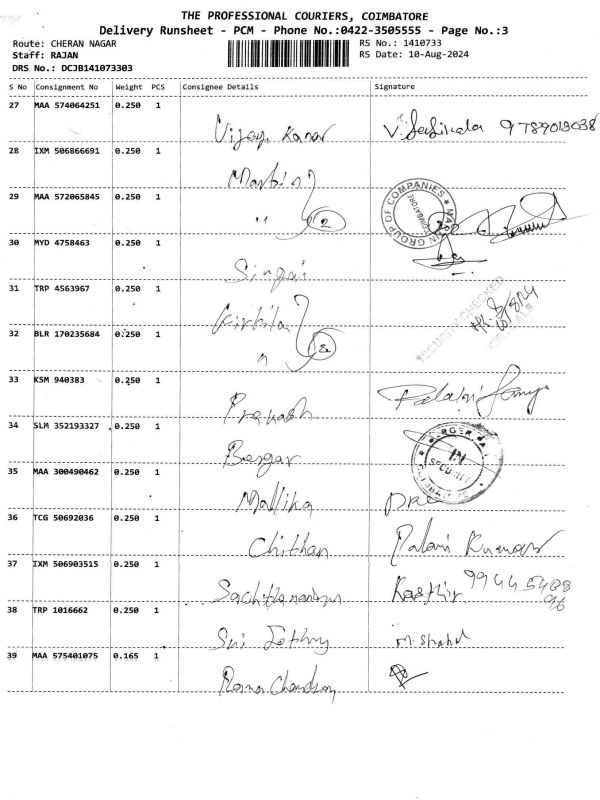 THE PROFESSIONAL COURIERS, COIMBATORE
Delivery Runsheet - PCM - Phone No.:0422-3505555 - Page No.:3
Route: CHERAN NAGAR RS No.: 1410733
Staff: RAJAN RS Date: 10-Aug-2024
DRS No.: DCJB141073303
S No Consignment No Weight PCS Consignee Details Signature
27 MAA 574064251 0.250 1
Vijay Kumar 9789013038
28 IXM 506866691 0.250 1
Martin
29 MAA 572065845 0.250 1
" 2
GROUP OF COMPANIES * MARTIN
COIMBATORE
30 MYD 4758463 0.250 1
31 TRP 4563967 0.250 1
SECURITY CHECKED
32 BLR 170235684 0.250 1
"
33 KSM 940383 0.250 1
Prakash Palani
34 SLM 352193327 0.250 1
IN
SECURITY
35 MAA 300490462 0.250 1
Mallika
36 TCG 50692036 0.250 1
Chithan Palani Kumar
37 IXM 506903515 0.250 1
38 TRP 1016662 0.250 1
Sri
39 MAA 575401075 0.165 1
Rama Chandran